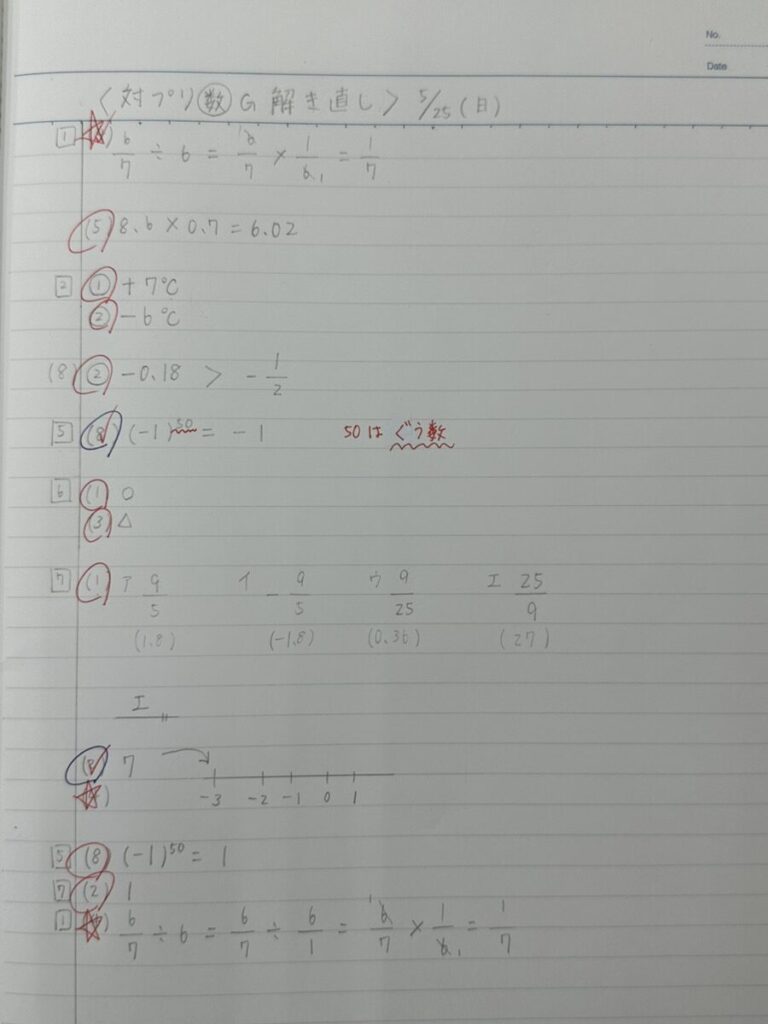 No.
Date
〈対プリ㊙数 G 解き直し〉 5/25(日)
1 6/7 ÷ 6 = 6/7 × 1/6 = 1/7
(5) 8.6 × 0.7 = 6.02
2 ① +7℃
② −6℃
(8) ② −0.18 > −1/2
5 (8) (−1)^50 = −1 50は ぐう数
6 (1) ○
(3) △
7 (1) ア 9/5 イ −9/5 ウ 9/25 エ 25/9
(1.8) (−1.8) (0.36) (27)
エ
7
−3 −2 −1 0 1
5 (8) (−1)^50 = 1
7 (2) 1
1 6/7 ÷ 6 = 6/7 ÷ 6/1 = 6/7 × 1/6 = 1/7